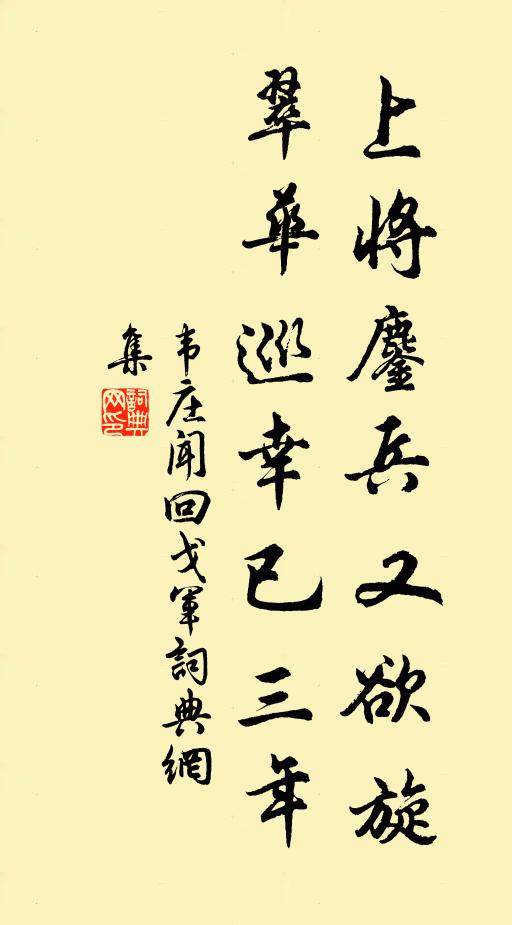 上將鏖兵又欲旋
翠華巡幸已三年
韦庄闻回戈军詞典網
集
詞典
网印